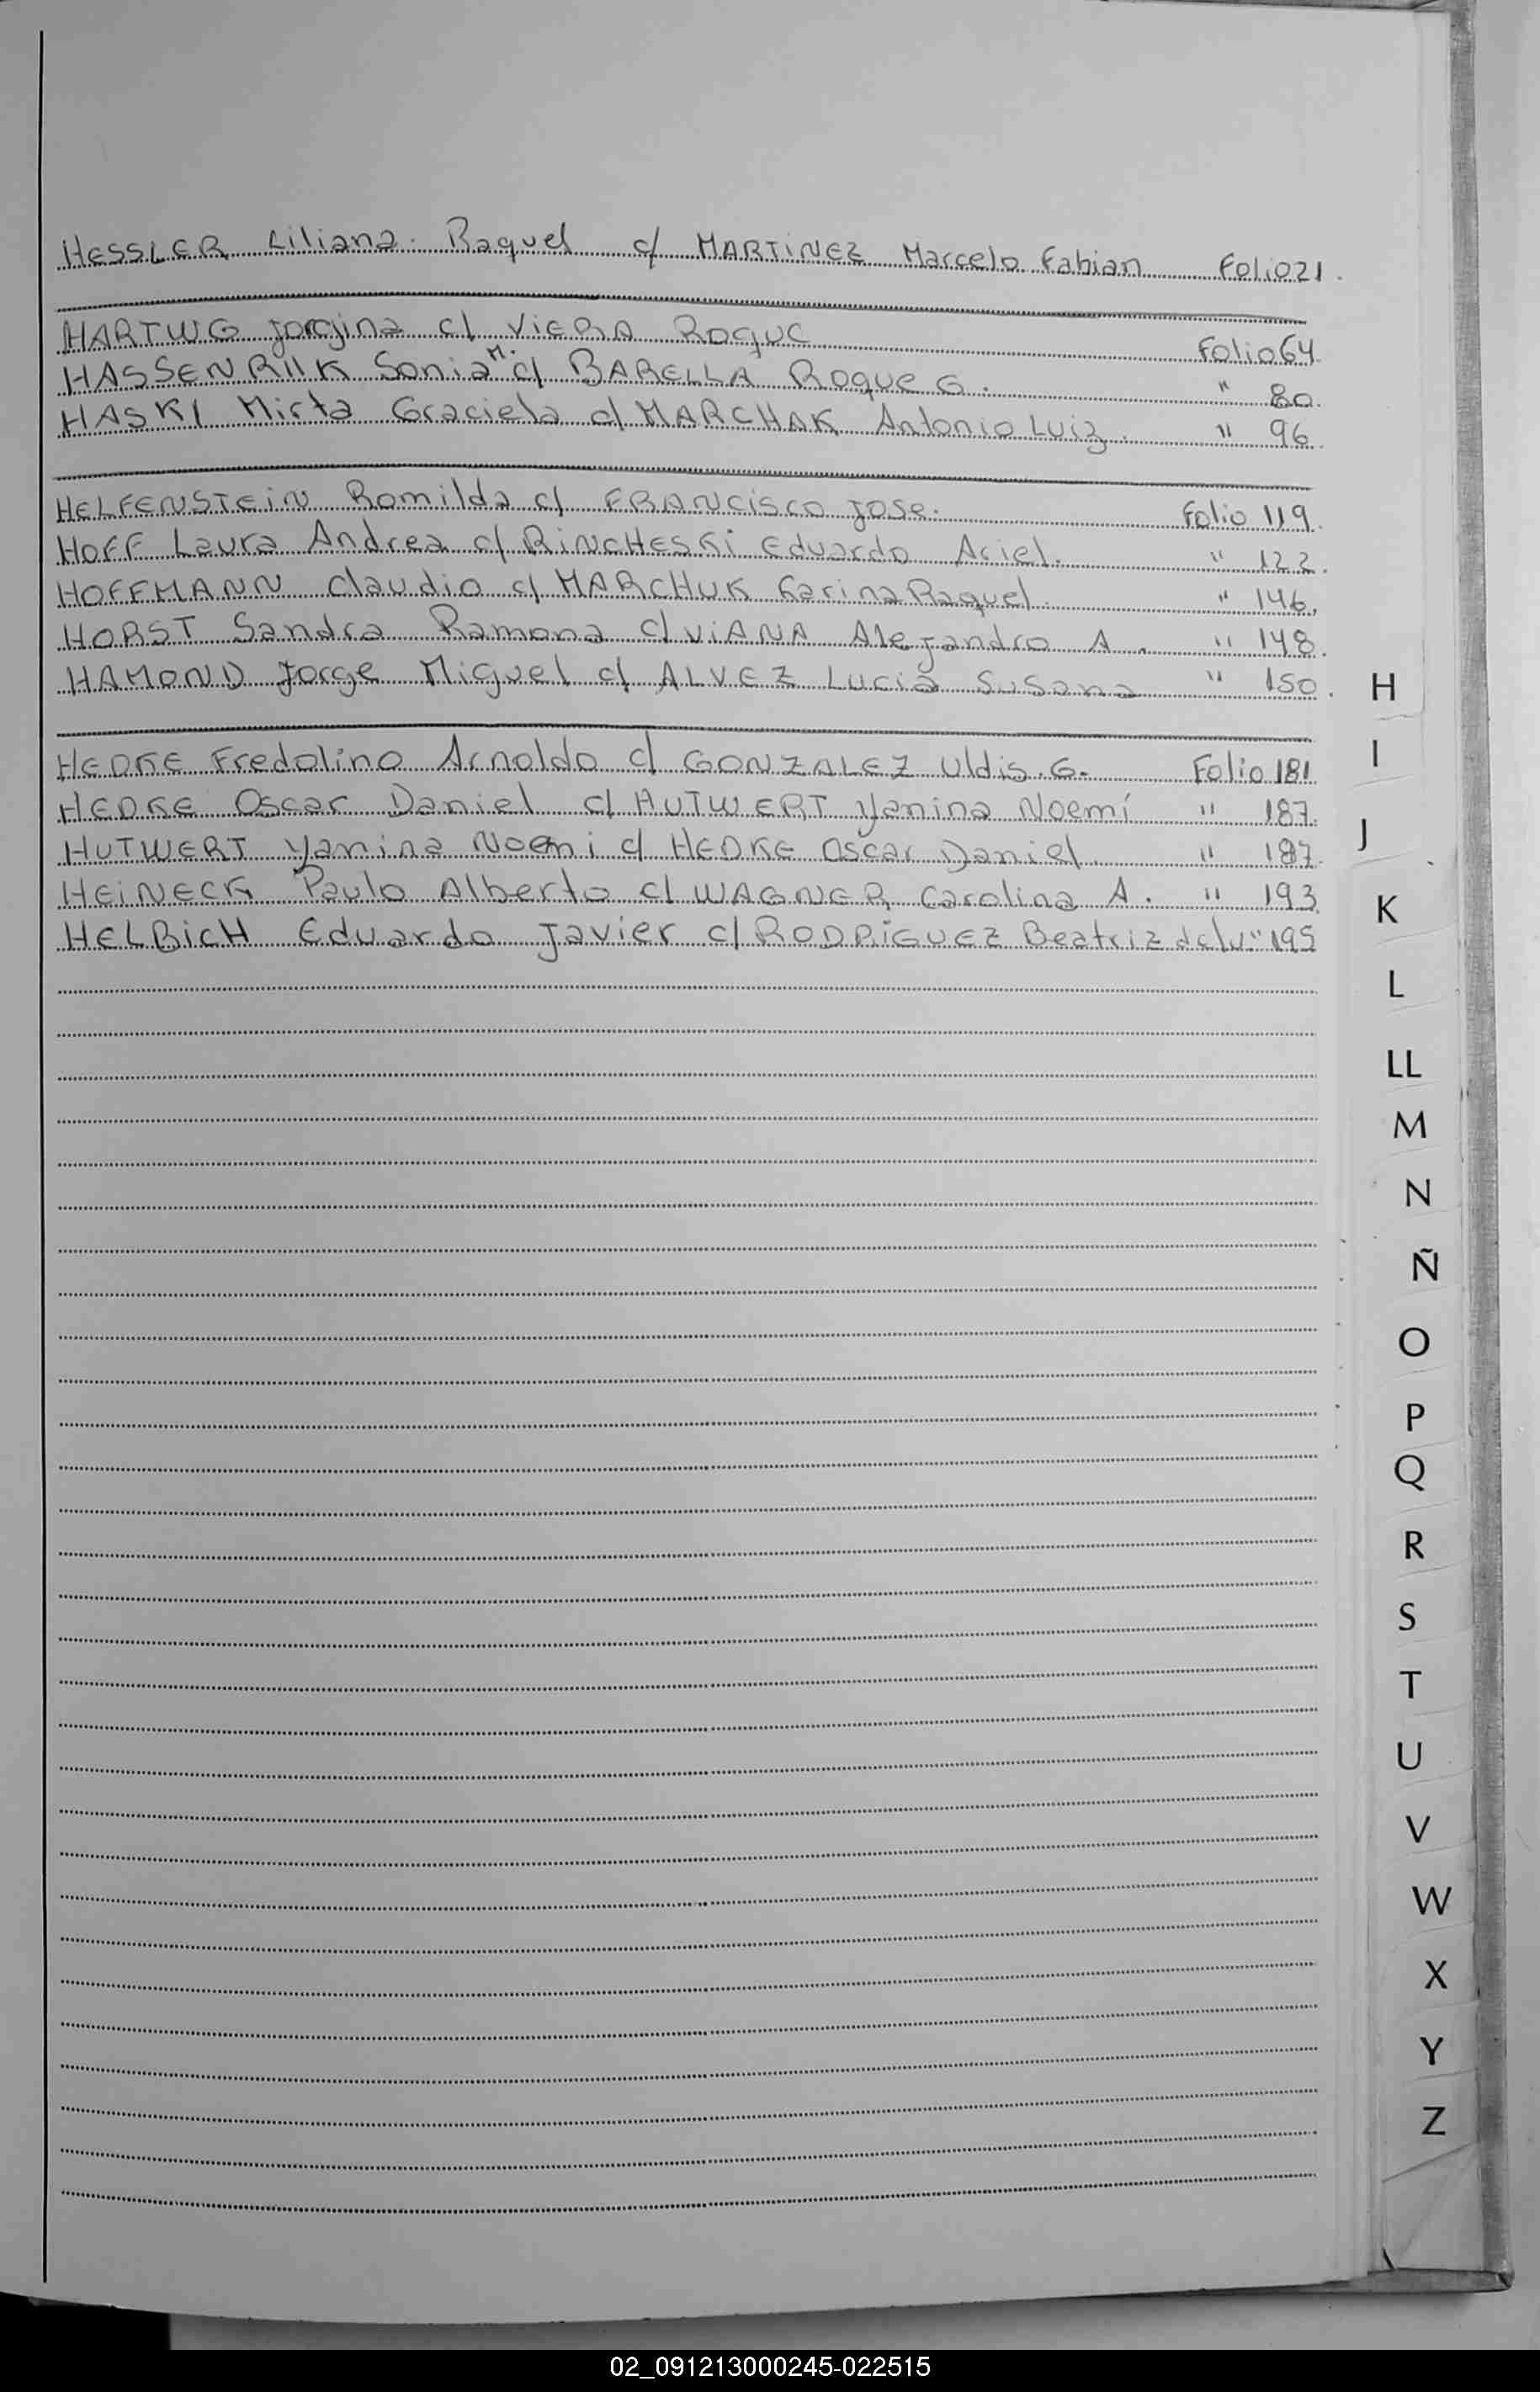 HESSLER Liliana Raquel c/ MARTINEZ Marcelo Fabian Folio 21.
HARTWG Jorgina c/ VIERA Roque Folio 64
HASSENRIIK Sonia M. c/ BARELLA Roque G. " 80.
HASKI Mirta Graciela c/ MARCHAK Antonio Luiz. " 96.
HELFENSTEIN Romilda c/ FRANCISCO Jose. Folio 119.
HOFF Laura Andrea c/ RINCHESKI Eduardo Ariel. " 122.
HOFFMANN Claudio c/ MARCHUK Karina Raquel. " 146.
HORST Sandra Ramona c/ VIANA Alejandro A. " 148.
HAMOND Jorge Miguel c/ ALVEZ Lucia Susana " 150.
HEDKE Fredolino Arnoldo c/ GONZALEZ Uldis G. Folio 181
HEDKE Oscar Daniel c/ HUTWERT Yanina Noemí " 187.
HUTWERT Yanina Noemi c/ HEDKE Oscar Daniel. " 187.
HEINECK Paulo Alberto c/ WAGNER Carolina A. " 193.
HELBICH Eduardo Javier c/ RODRIGUEZ Beatriz " 195
H
I
J
K
L
LL
M
N
Ñ
O
P
Q
R
S
T
U
V
W
X
Y
Z
02_091213000245-022515